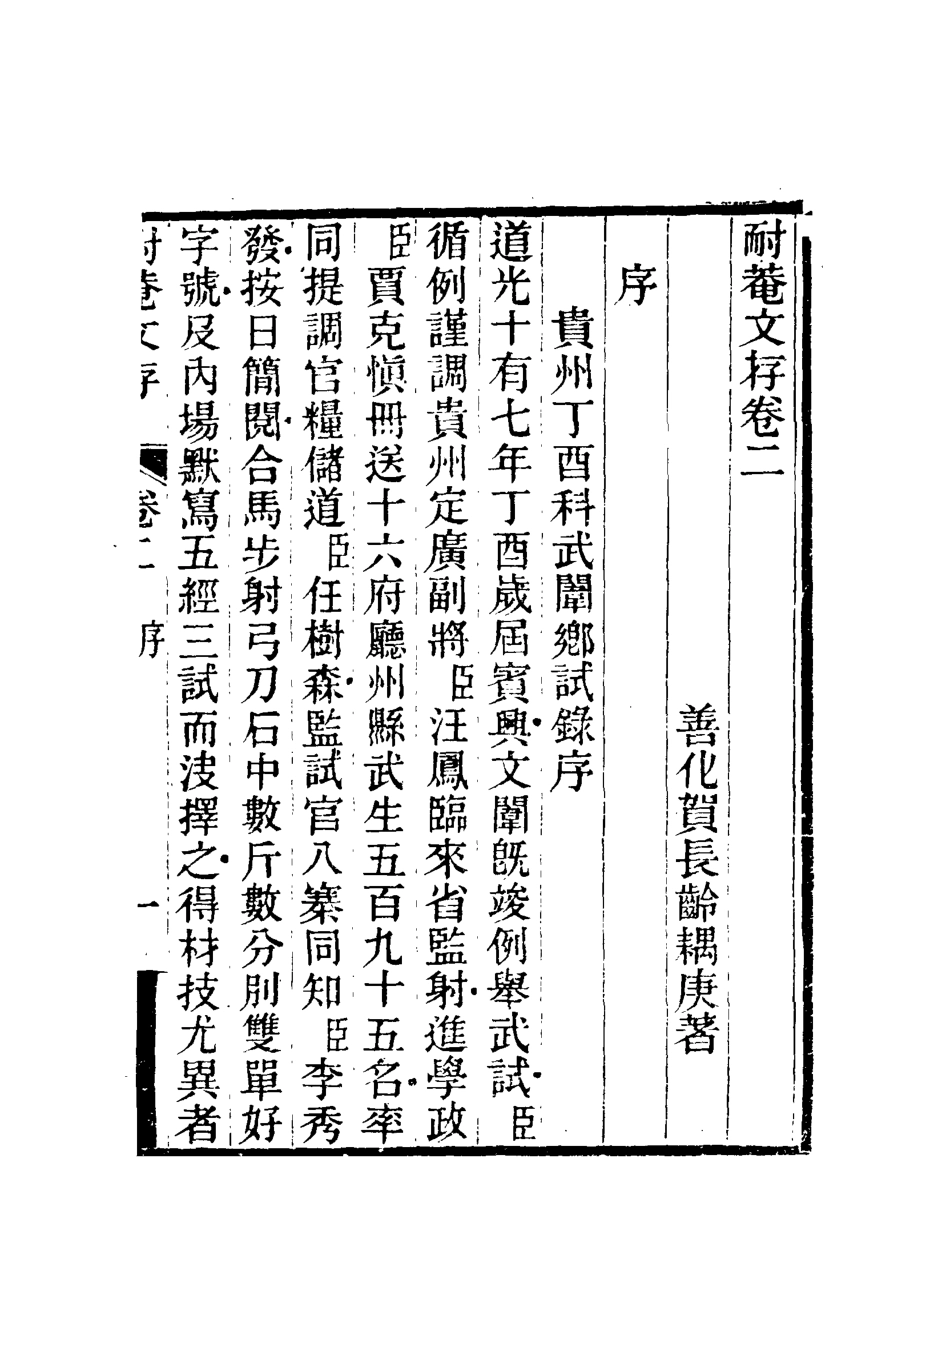 耐菴文存卷二
善化賀長齡耦庚著
序
貴州丁酉科武闈鄉試錄序
道光十有七年丁酉歲屆賓興文闈既竣例舉武試臣
循例謹調貴州定廣副將臣汪鳳臨來省監射進學政
臣賈克慎冊送十六府廳州縣武生五百九十五名率
同提調官糧儲道臣任樹森監試官八寨同知臣李秀
發按日簡閱合馬步射弓刀石中數斤數分別雙單好
字號及內場默寫五經三試而決擇之得材技尤異者
耐菴文存 卷二 序 一